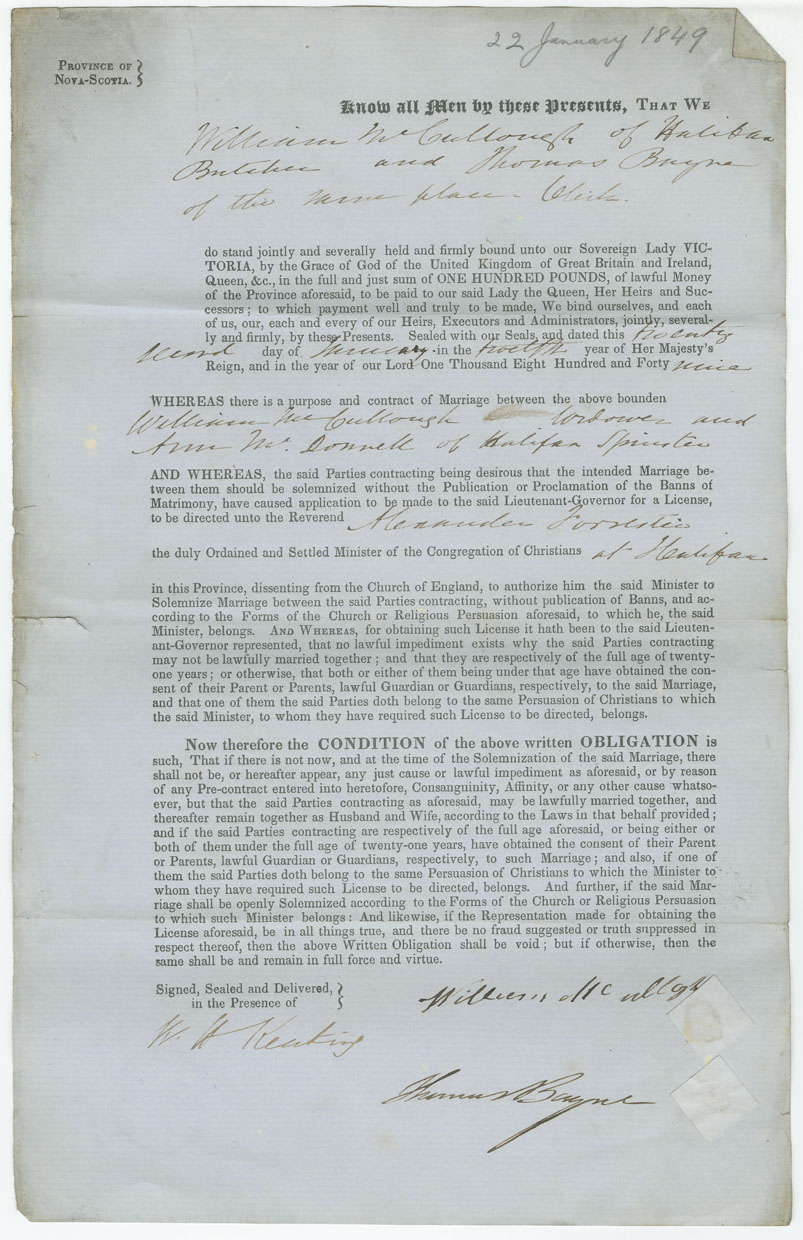 22 January 1849
PROVINCE OF
NOVA-SCOTIA.
Know all Men by these Presents, THAT WE
William McCullough of Halifax
Butcher and Thomas Bayne
of the same place - Clerk.
do stand jointly and severally held and firmly bound unto our Sovereign Lady VIC-
TORIA, by the Grace of God of the United Kingdom of Great Britain and Ireland,
Queen, &c., in the full and just sum of ONE HUNDRED POUNDS, of lawful Money
of the Province aforesaid, to be paid to our said Lady the Queen, Her Heirs and Suc-
cessors; to which payment well and truly to be made, We bind ourselves, and each
of us, our, each and every of our Heirs, Executors and Administrators, jointly, several-
ly and firmly, by these Presents. Sealed with our Seals, and dated this twenty
second day of January in the twelfth year of Her Majesty's
Reign, and in the year of our Lord One Thousand Eight Hundred and Forty nine
WHEREAS there is a purpose and contract of Marriage between the above bounden
William McCullough Widower and
Ann Mc. Donnell of Halifax Spinster
AND WHEREAS, the said Parties contracting being desirous that the intended Marriage be-
tween them should be solemnized without the Publication or Proclamation of the Banns of
Matrimony, have caused application to be made to the said Lieutenant-Governor for a License,
to be directed unto the Reverend Alexander Forrester
the duly Ordained and Settled Minister of the Congregation of Christians at Halifax
in this Province, dissenting from the Church of England, to authorize him the said Minister to
Solemnize Marriage between the said Parties contracting, without publication of Banns, and ac-
cording to the Forms of the Church or Religious Persuasion aforesaid, to which he, the said
Minister, belongs. AND WHEREAS, for obtaining such License it hath been to the said Lieuten-
ant-Governor represented, that no lawful impediment exists why the said Parties contracting
may not be lawfully married together; and that they are respectively of the full age of twenty-
one years; or otherwise, that both or either of them being under that age have obtained the con-
sent of their Parent or Parents, lawful Guardian or Guardians, respectively, to the said Marriage,
and that one of them the said Parties doth belong to the same Persuasion of Christians to which
the said Minister, to whom they have required such License to be directed, belongs.
Now therefore the CONDITION of the above written OBLIGATION is
such, That if there is not now, and at the time of the Solemnization of the said Marriage, there
shall not be, or hereafter appear, any just cause or lawful impediment as aforesaid, or by reason
of any Pre-contract entered into heretofore, Consanguinity, Affinity, or any other cause whatso-
ever, but that the said Parties contracting as aforesaid, may be lawfully married together, and
thereafter remain together as Husband and Wife, according to the Laws in that behalf provided;
and if the said Parties contracting are respectively of the full age aforesaid, or being either or
both of them under the full age of twenty-one years, have obtained the consent of their Parent
or Parents, lawful Guardian or Guardians, respectively, to such Marriage; and also, if one of
them the said Parties doth belong to the same Persuasion of Christians to which the Minister to
whom they have required such License to be directed, belongs. And further, if the said Mar-
riage shall be openly Solemnized according to the Forms of the Church or Religious Persuasion
to which such Minister belongs: And likewise, if the Representation made for obtaining the
License aforesaid, be in all things true, and there be no fraud suggested or truth suppressed in
respect thereof, then the above Written Obligation shall be void; but if otherwise, then the
same shall be and remain in full force and virtue.
Signed, Sealed and Delivered,
in the Presence of
William Mc
W. H Keating
Thomas Bayne